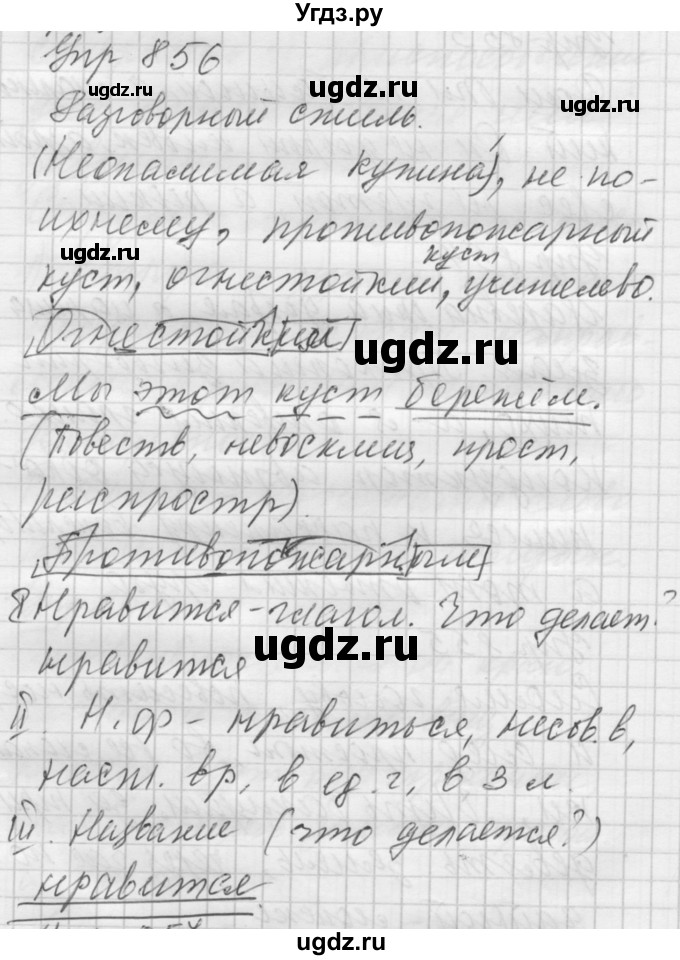 Угдз.ру
Упр 856
ugdz.ru
ugdz.ru
Разговорный стиль.
(Неопалимая купина), не по-
ugdz.ru
ихнему, противопожарный
куст
куст, огнестойкий, учителево.
Огнестойкий
ugdz.ru
Мы этот куст бережём.
(Повеств, невосклиц, прост,
распростр).
Противопожарный
Нравится - глагол. Что делает?
ugdz.ru
нравится
II. Н. ф - нравиться, несов. в,
наст. вр, в ед. ч, в 3 л.
III. Название (что делается?)
ugdz.ru
ugdz.ru
нравится
ugdz.ru